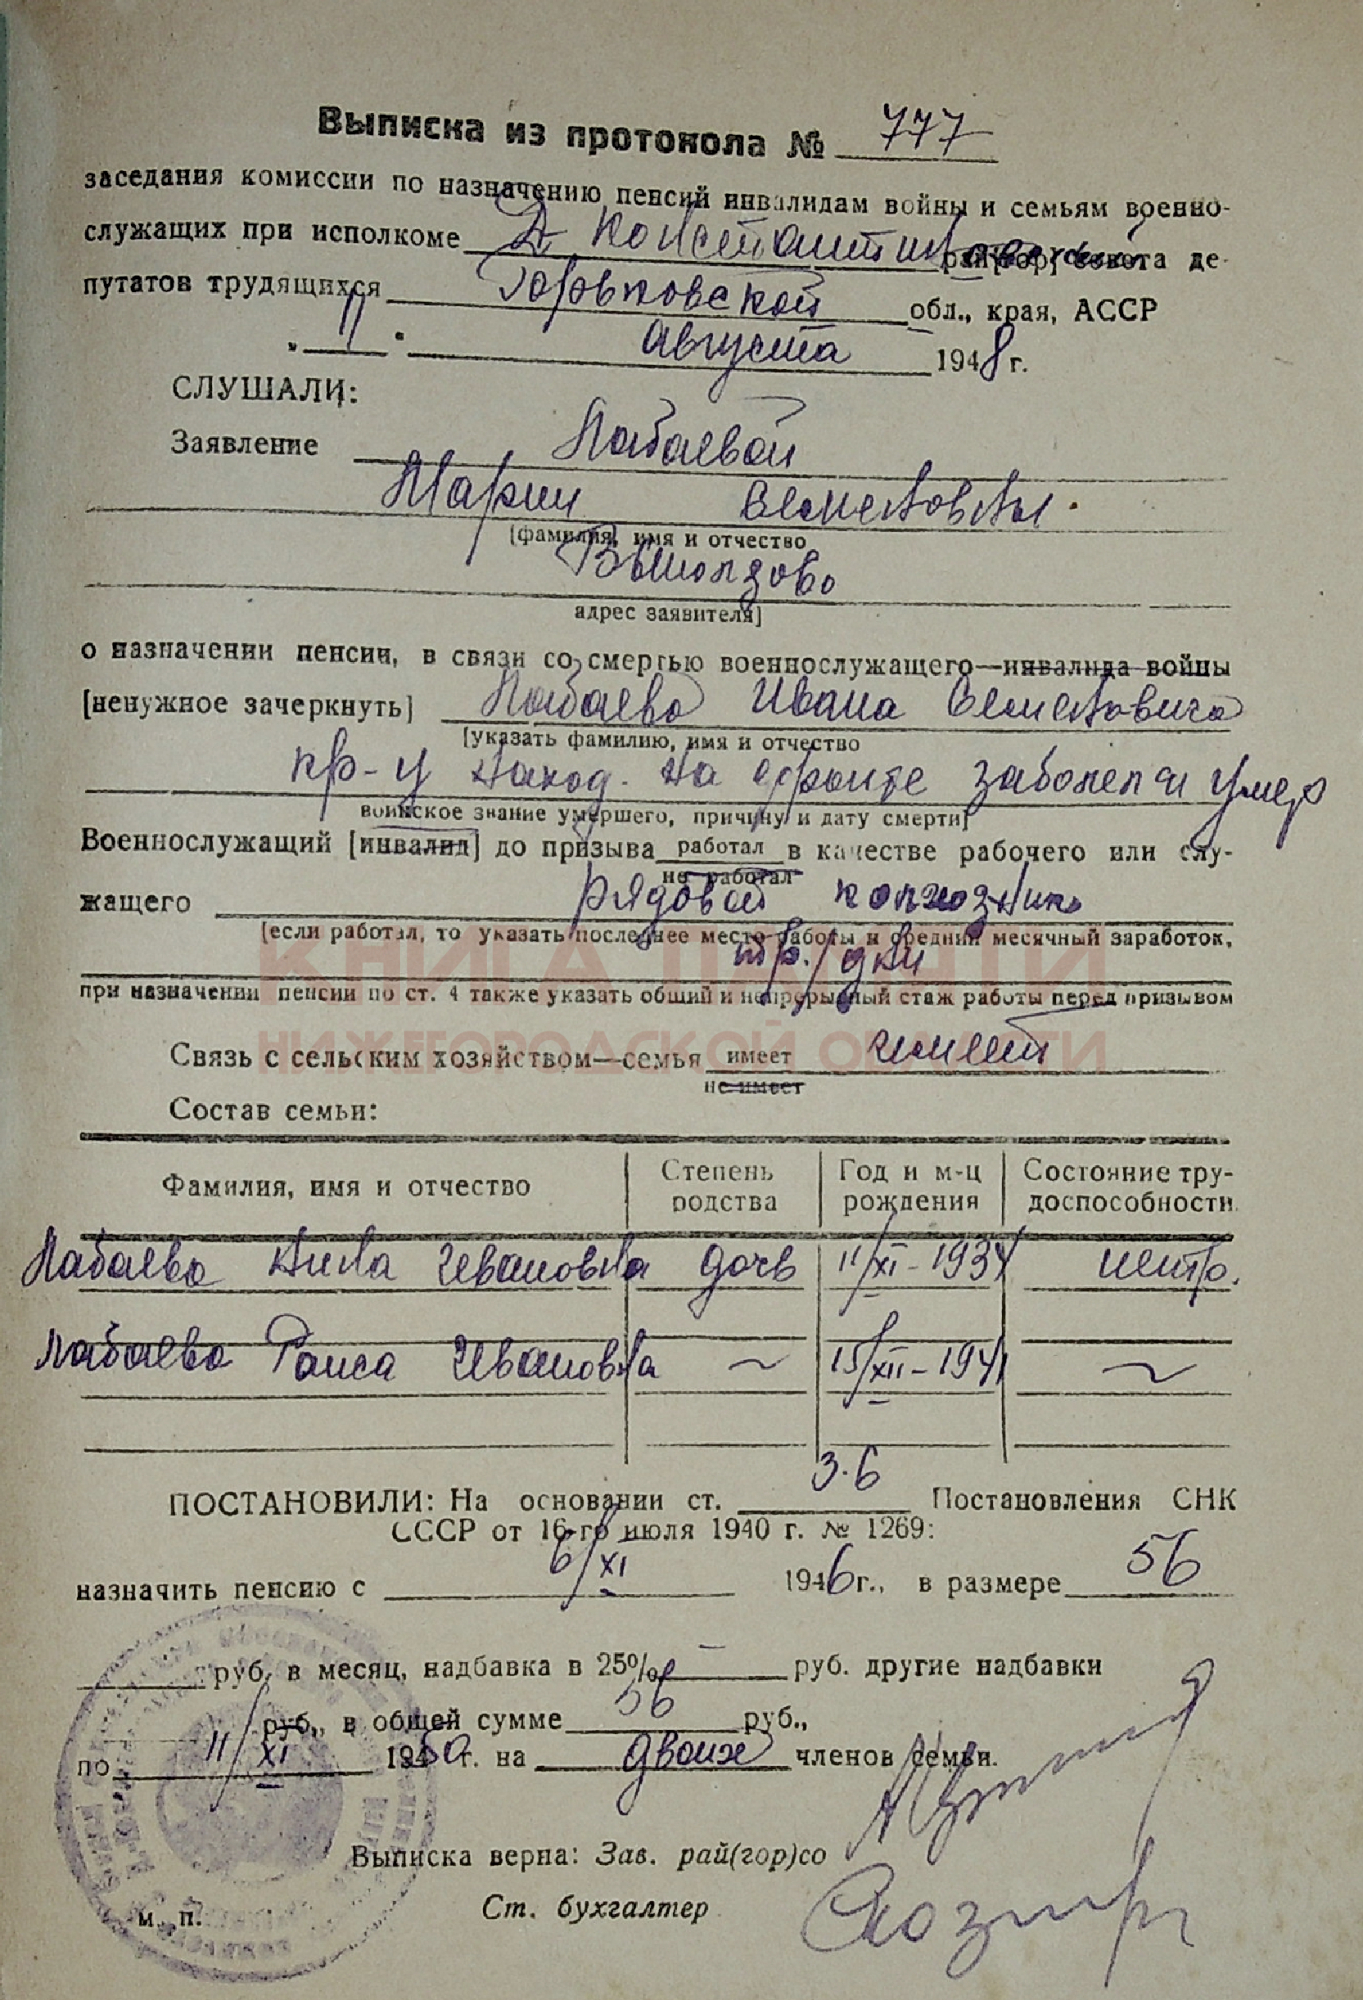 Выписка из протокола № 777
заседания комиссии по назначению пенсий инвалидам войны и семьям военно-
служащих при исполкоме Д Константиновского рай(гор)совета де-
путатов трудящихся Горьковской обл., края, АССР
„11“ Августа 1948 г.
СЛУШАЛИ:
Заявление Лабаевой
Марии Семеновны.
[фамилия, имя и отчество
адрес заявителя]
о назначении пенсии, в связи со смертью военнослужащего—инвалида войны
[ненужное зачеркнуть] Лабаева Ивана Семеновича
[указать фамилию, имя и отчество
кр-ц наход. на фронте заболел и умер
воинское звание умершего, причину и дату смерти]
Военнослужащий [инвалид] до призыва работал в качестве рабочего или слу-
не работал
жащего рядовой колхозник
[если работал, то указать последнее место работы и средний месячный заработок,
тр/дни
при назначении пенсии по ст. 4 также указать общий и непрерывный стаж работы перед призывом
КНИГА ПАМЯТИ
НИЖЕГОРОДСКОЙ ОБЛАСТИ
Связь с сельским хозяйством—семья имеет имеет
не имеет
Состав семьи:
Фамилия, имя и отчество Степень родства Год и м-ц рождения Состояние тру-доспособности
Лабаева Нина Ивановна дочь 11/XI-1934 нетр.
Лабаева Раиса Ивановна ~ 15/XII-1941 ~
ПОСТАНОВИЛИ: На основании ст. 3.6 Постановления СНК
СССР от 16-го июля 1940 г. № 1269:
назначить пенсию с 6/XI 1946 г., в размере 56
руб. в месяц, надбавка в 25% — руб. другие надбавки
руб., в общей сумме 56 руб.,
по 11/XI 1950 г. на двоих членов семьи.
Выписка верна: Зав. рай(гор)со
Ст. бухгалтер
м. п.